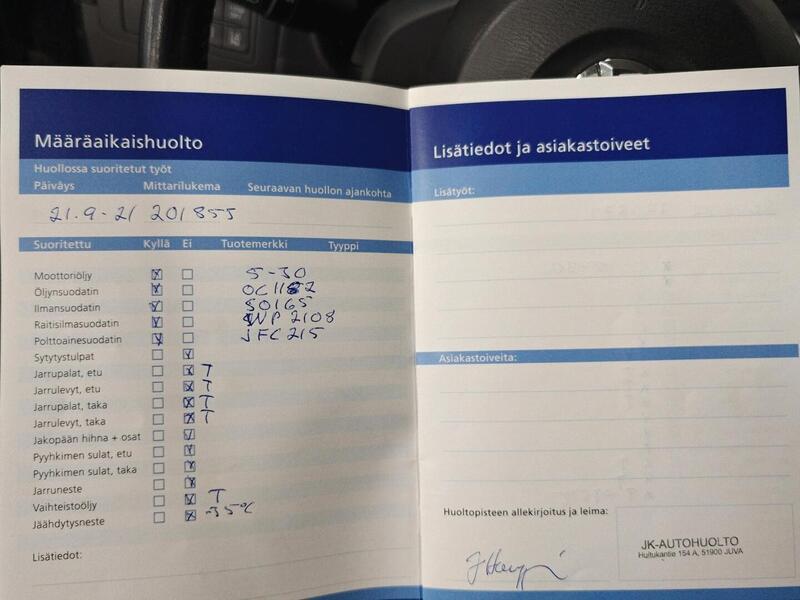 Määräaikaishuolto
Huollossa suoritetut työt
Päiväys Mittarilukema Seuraavan huollon ajankohta
21.9-21 201855
Suoritettu Kyllä Ei Tuotemerkki Tyyppi
Moottoriöljy 5-30
Öljynsuodatin OC1182
Ilmansuodatin S0165
Raitisilmasuodatin WP 2108
Polttoainesuodatin JFC215
Sytytystulpat
Jarrupalat, etu T
Jarrulevyt, etu T
Jarrupalat, taka T
Jarrulevyt, taka T
Jakopään hihna + osat
Pyyhkimen sulat, etu
Pyyhkimen sulat, taka
Jarruneste
Vaihteistoöljy T
Jäähdytysneste -35°C
Lisätiedot:
Lisätiedot ja asiakastoiveet
Lisätyöt:
Asiakastoiveita:
Huoltopisteen allekirjoitus ja leima:
JK-AUTOHUOLTO
Huitukantie 154 A, 51900 JUVA